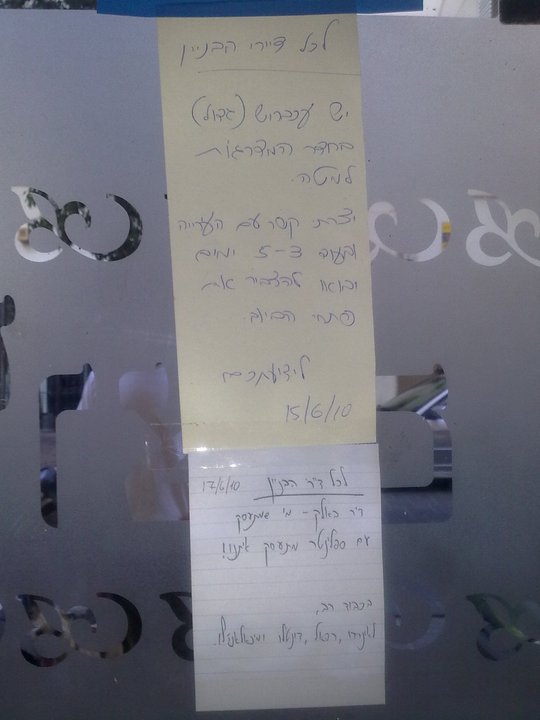 לכל דיירי הבניין
יש עכברוש (גדול)
בחדר המדרגות
למטה.
יצרתי קשר עם העריה
ובעוד 3-5 ימים
יבואו להדביר את
פתחי הביוב.
לידיעתכם
15/6/10
לכל דיר הבניין 17/6/10
דיר באלק - מי שמתעסק
עם ספלינטר מתעסק איתנו!
בכבוד רב,
לאונרדו, רפאל, דונטלו ומיכאלאנג'לו.